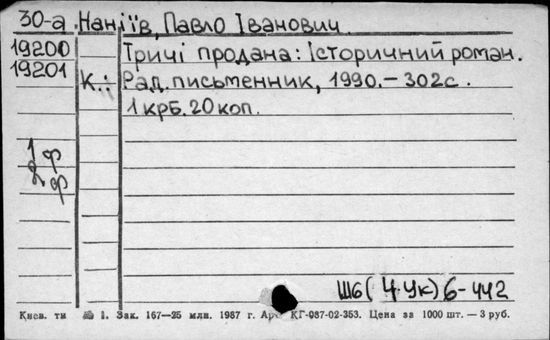 30-а Наніїв, Павло Іванович.
19200 Тричі продана: Історичний роман.
19201 К.: Рад. письменник, 1990. – 302с.
1 крб. 20 коп.
1 ф
2 ф
Ш6(4Ук)6-442
Києв. ти № 1. Зак. 167—25 млн. 1987 г. КГ-087-02-353. Цена за 1000 шт. — 3 руб.